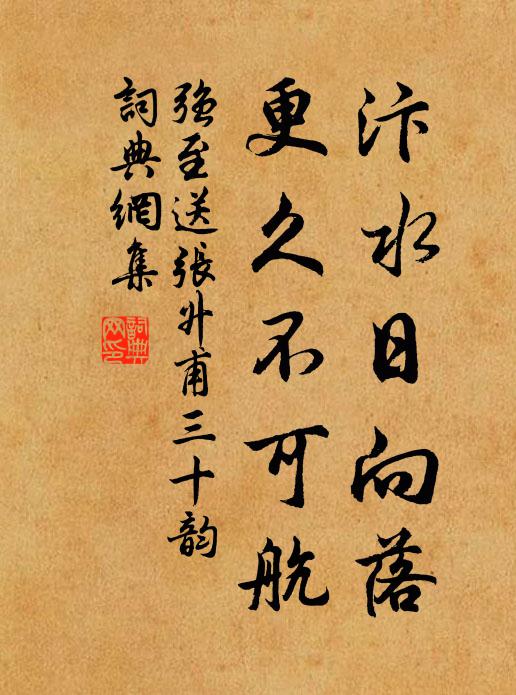 汴水日向落
更久不可航
強至送張升甫三十韵
詞典網集
詞典
网印